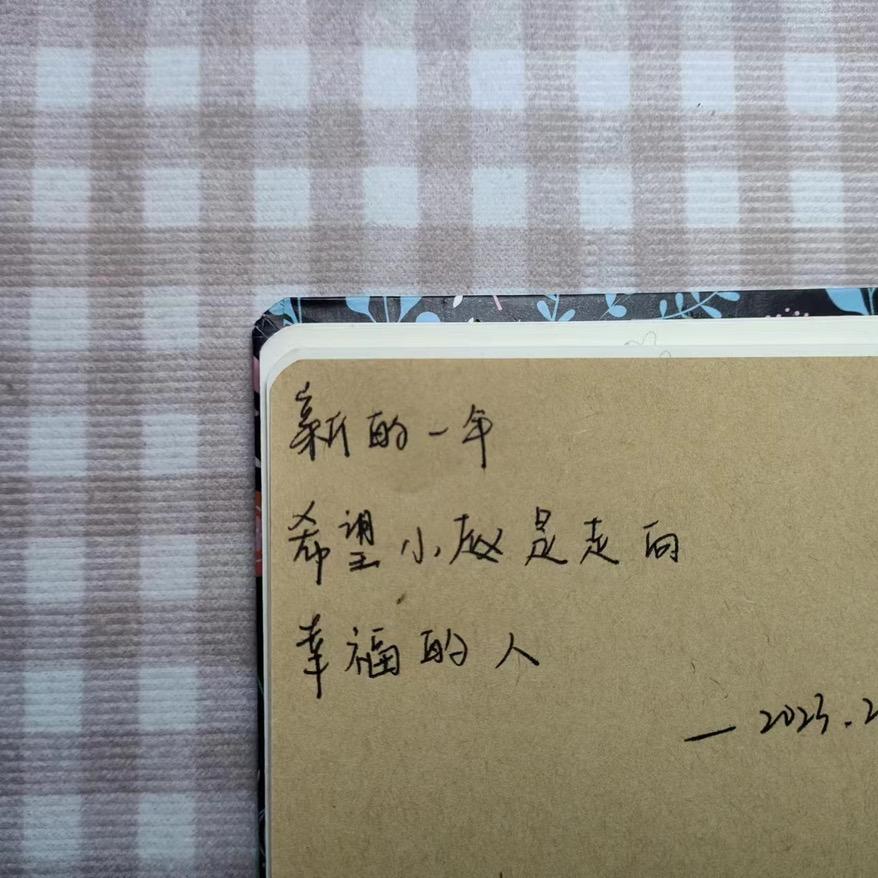 新的一年
希望小赵是走向
幸福的人
— 2023.2